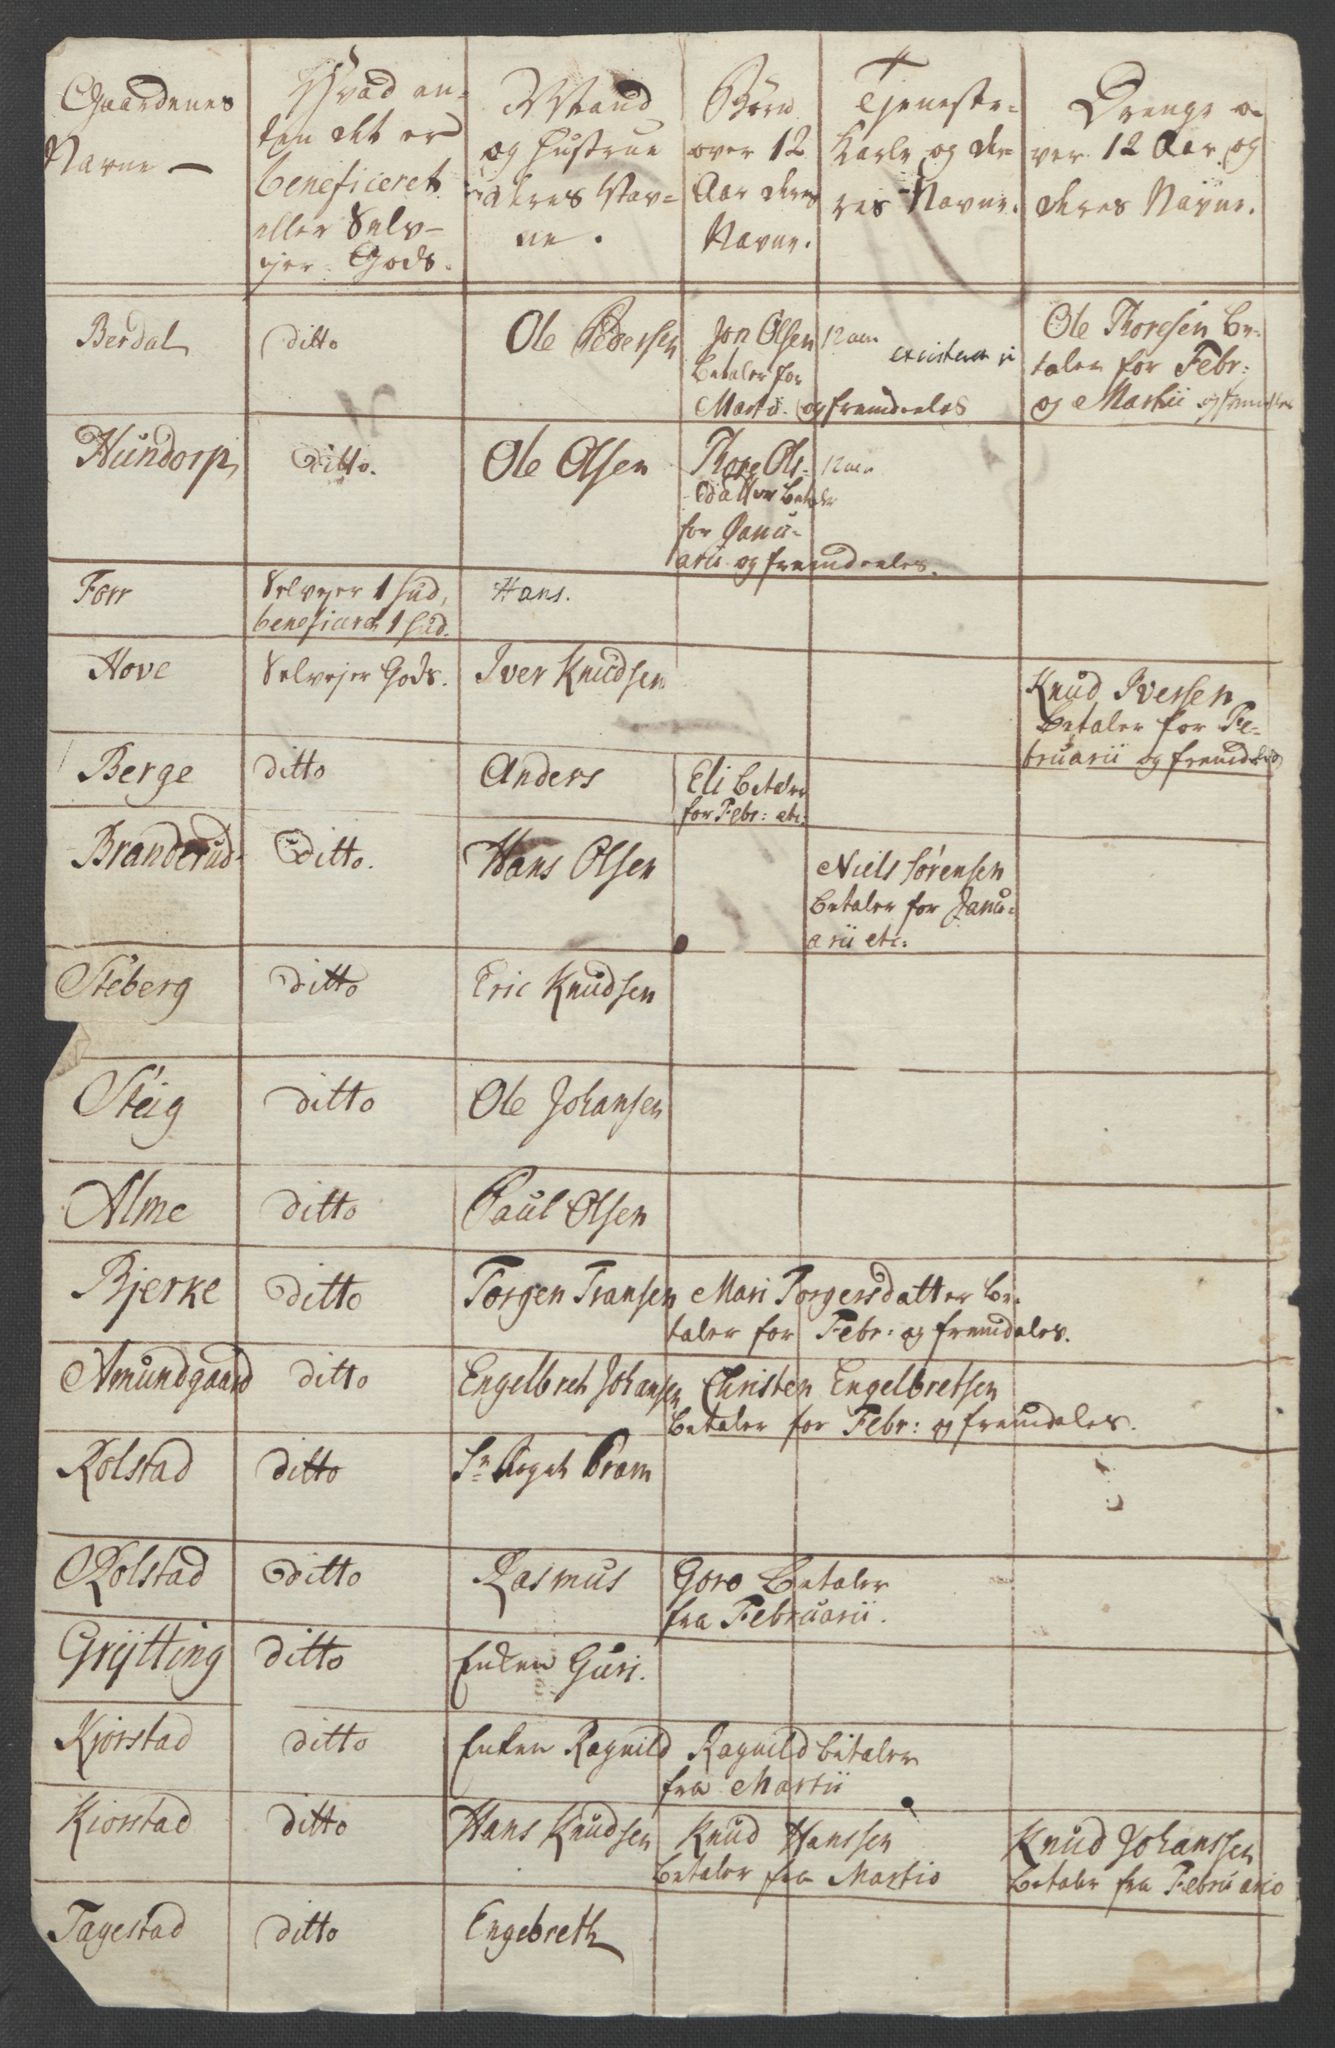 Gaardenes
Navne —
Hvad en-
ten det er
beneficeret
eller Selv-
ejer Gods.
Mand
og Hustrue
deres Nav-
ne.
Børn
over 12
Aar deres
Navne.
Tjeneste-
Karle og de-
res Navne.
Drenge o-
ver 12 Aar og
deres Navne.
Berdal
ditto
Ole Pedersen
Jon Olsen 12 aar
betaler for
Martii og fremdeeles
existerer ei
Ole Thoresen be-
taler for Febr:
og Martii og fremdeles
Hundorp
Ditto.
Ole Olsen
Thore Ols- 12 aar
datter betaler
for Janu-
arii og fremdeeles.
Forr
Selvejer 1 hud,
beneficeret 1 hud.
Hans.
Hove
Selvejer Gods.
Iver Knudsen
Knud Iversen
betaler for Fe-
bruarii og fremdeles
Berge
ditto
Anders
Eli betaler
for Febr: etc.
Branderud
Ditto.
Hans Olsen
Niels Sørensen
betaler for Janu-
arii etc.
Steberg
ditto
Eric Knudsen
Steig
ditto
Ole Johansen
Alme
ditto
Paul Olsen
Bjerke
ditto
Torgen Transen
Mari Torgersdatter be-
taler for Febr: og fremdeles.
Amundgaard
ditto
Engelbret Johansen
Christen Engelbretsen
betaler for Febr: og fremdeles.
Kolstad
ditto
Sr Pram
Kolstad
ditto
Rasmus
Goro betaler
fra Februarii.
Grytting
ditto
Enken Guri.
Kjorstad
ditto
Enken Ragnild
Ragnild betaler
fra Martii
Kiorstad
ditto
Hans Knudsen
Knud Hanssen
betaler fra Martio
Knud Johanssen
betaler fra Februario
Tagestad
ditto
Engebreth